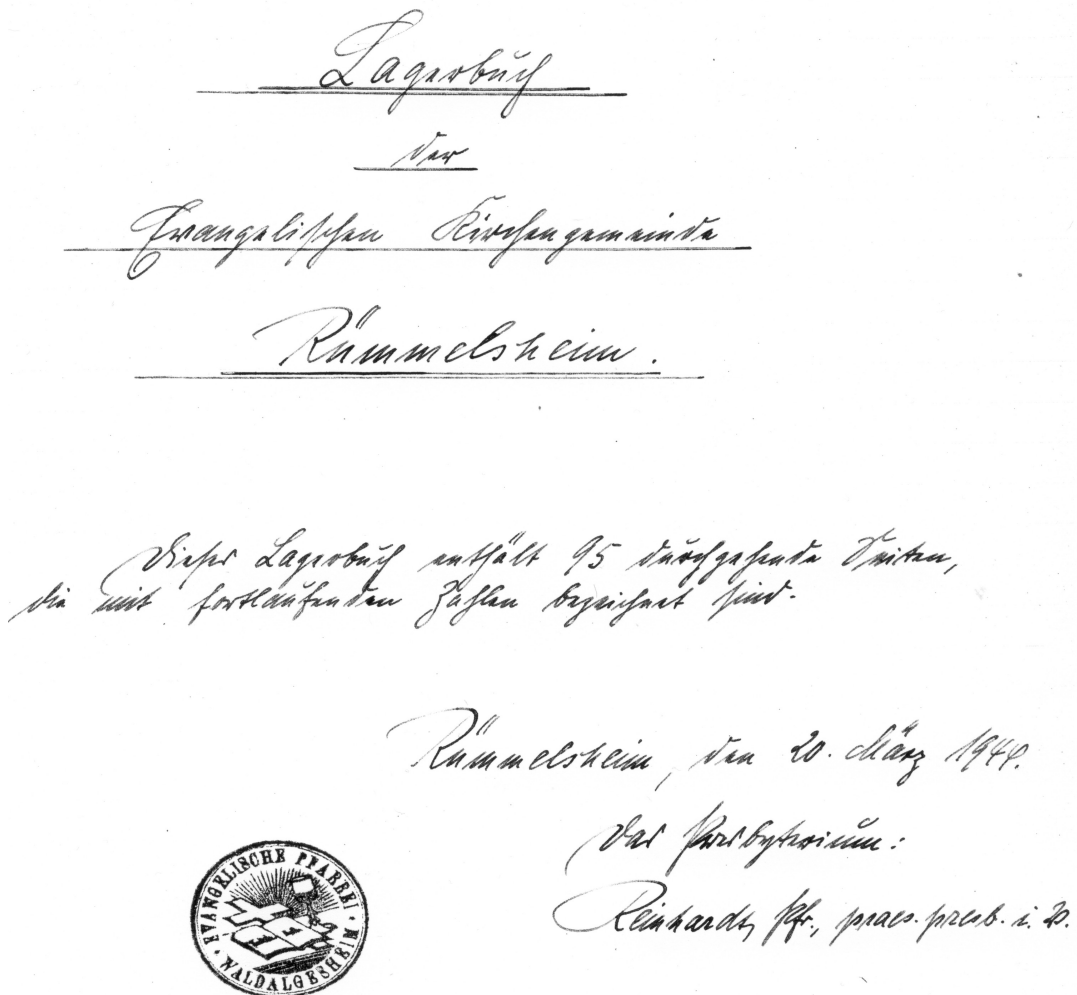 Lagerbuch
der
Evangelischen Kirchengemeinde
Rümmelsheim.
Dieses Lagerbuch enthält 95 durchgehende Seiten,
die mit fortlaufenden Zahlen bezeichnet sind.
Rümmelsheim, den 20. März 1944.
Das Presbyterium:
Reinhardt, Pfr., praes. presb. i. V.
EVANGELISCHE PFARREI · WALDALGESHEIM ·